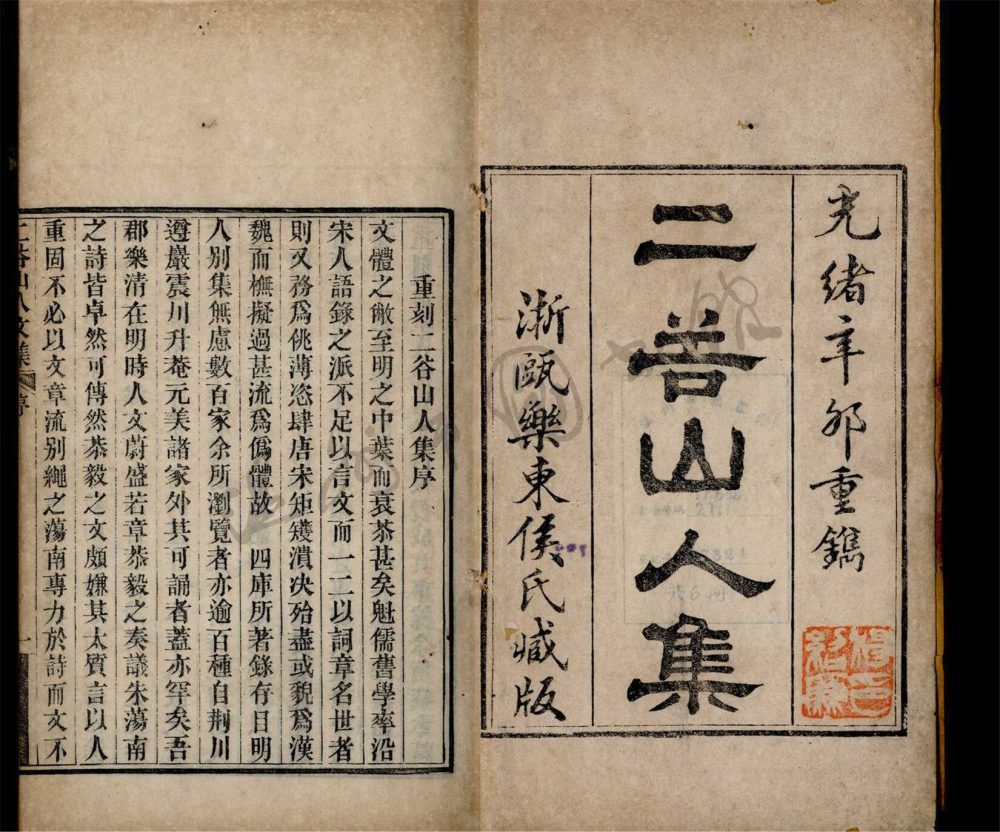 光緒辛卯重鐫
二谷山人集
浙甌樂東侯氏臧版
重刻二谷山人集序
文體之敝至明之中葉而衰苶甚矣魁儒舊學率沿
宋人語錄之派不足以言文而一二以詞章名世者
則又務爲佻薄恣肆唐宋矩矱潰決殆盡或貌爲漢
魏而橅擬過甚流爲僞體故 四庫所著錄存目明
人別集無慮數百家余所瀏覽者亦逾百種自荆川
遵巖震川升菴元美諸家外其可誦者蓋亦罕矣吾
郡樂清在明時人文蔚盛若章恭毅之奏議朱蕩南
之詩皆卓然可傳然恭毅之文頗嫌其太質言以人
重固不必以文章流别繩之蕩南專力於詩而文不
二谷山人文集 序 一